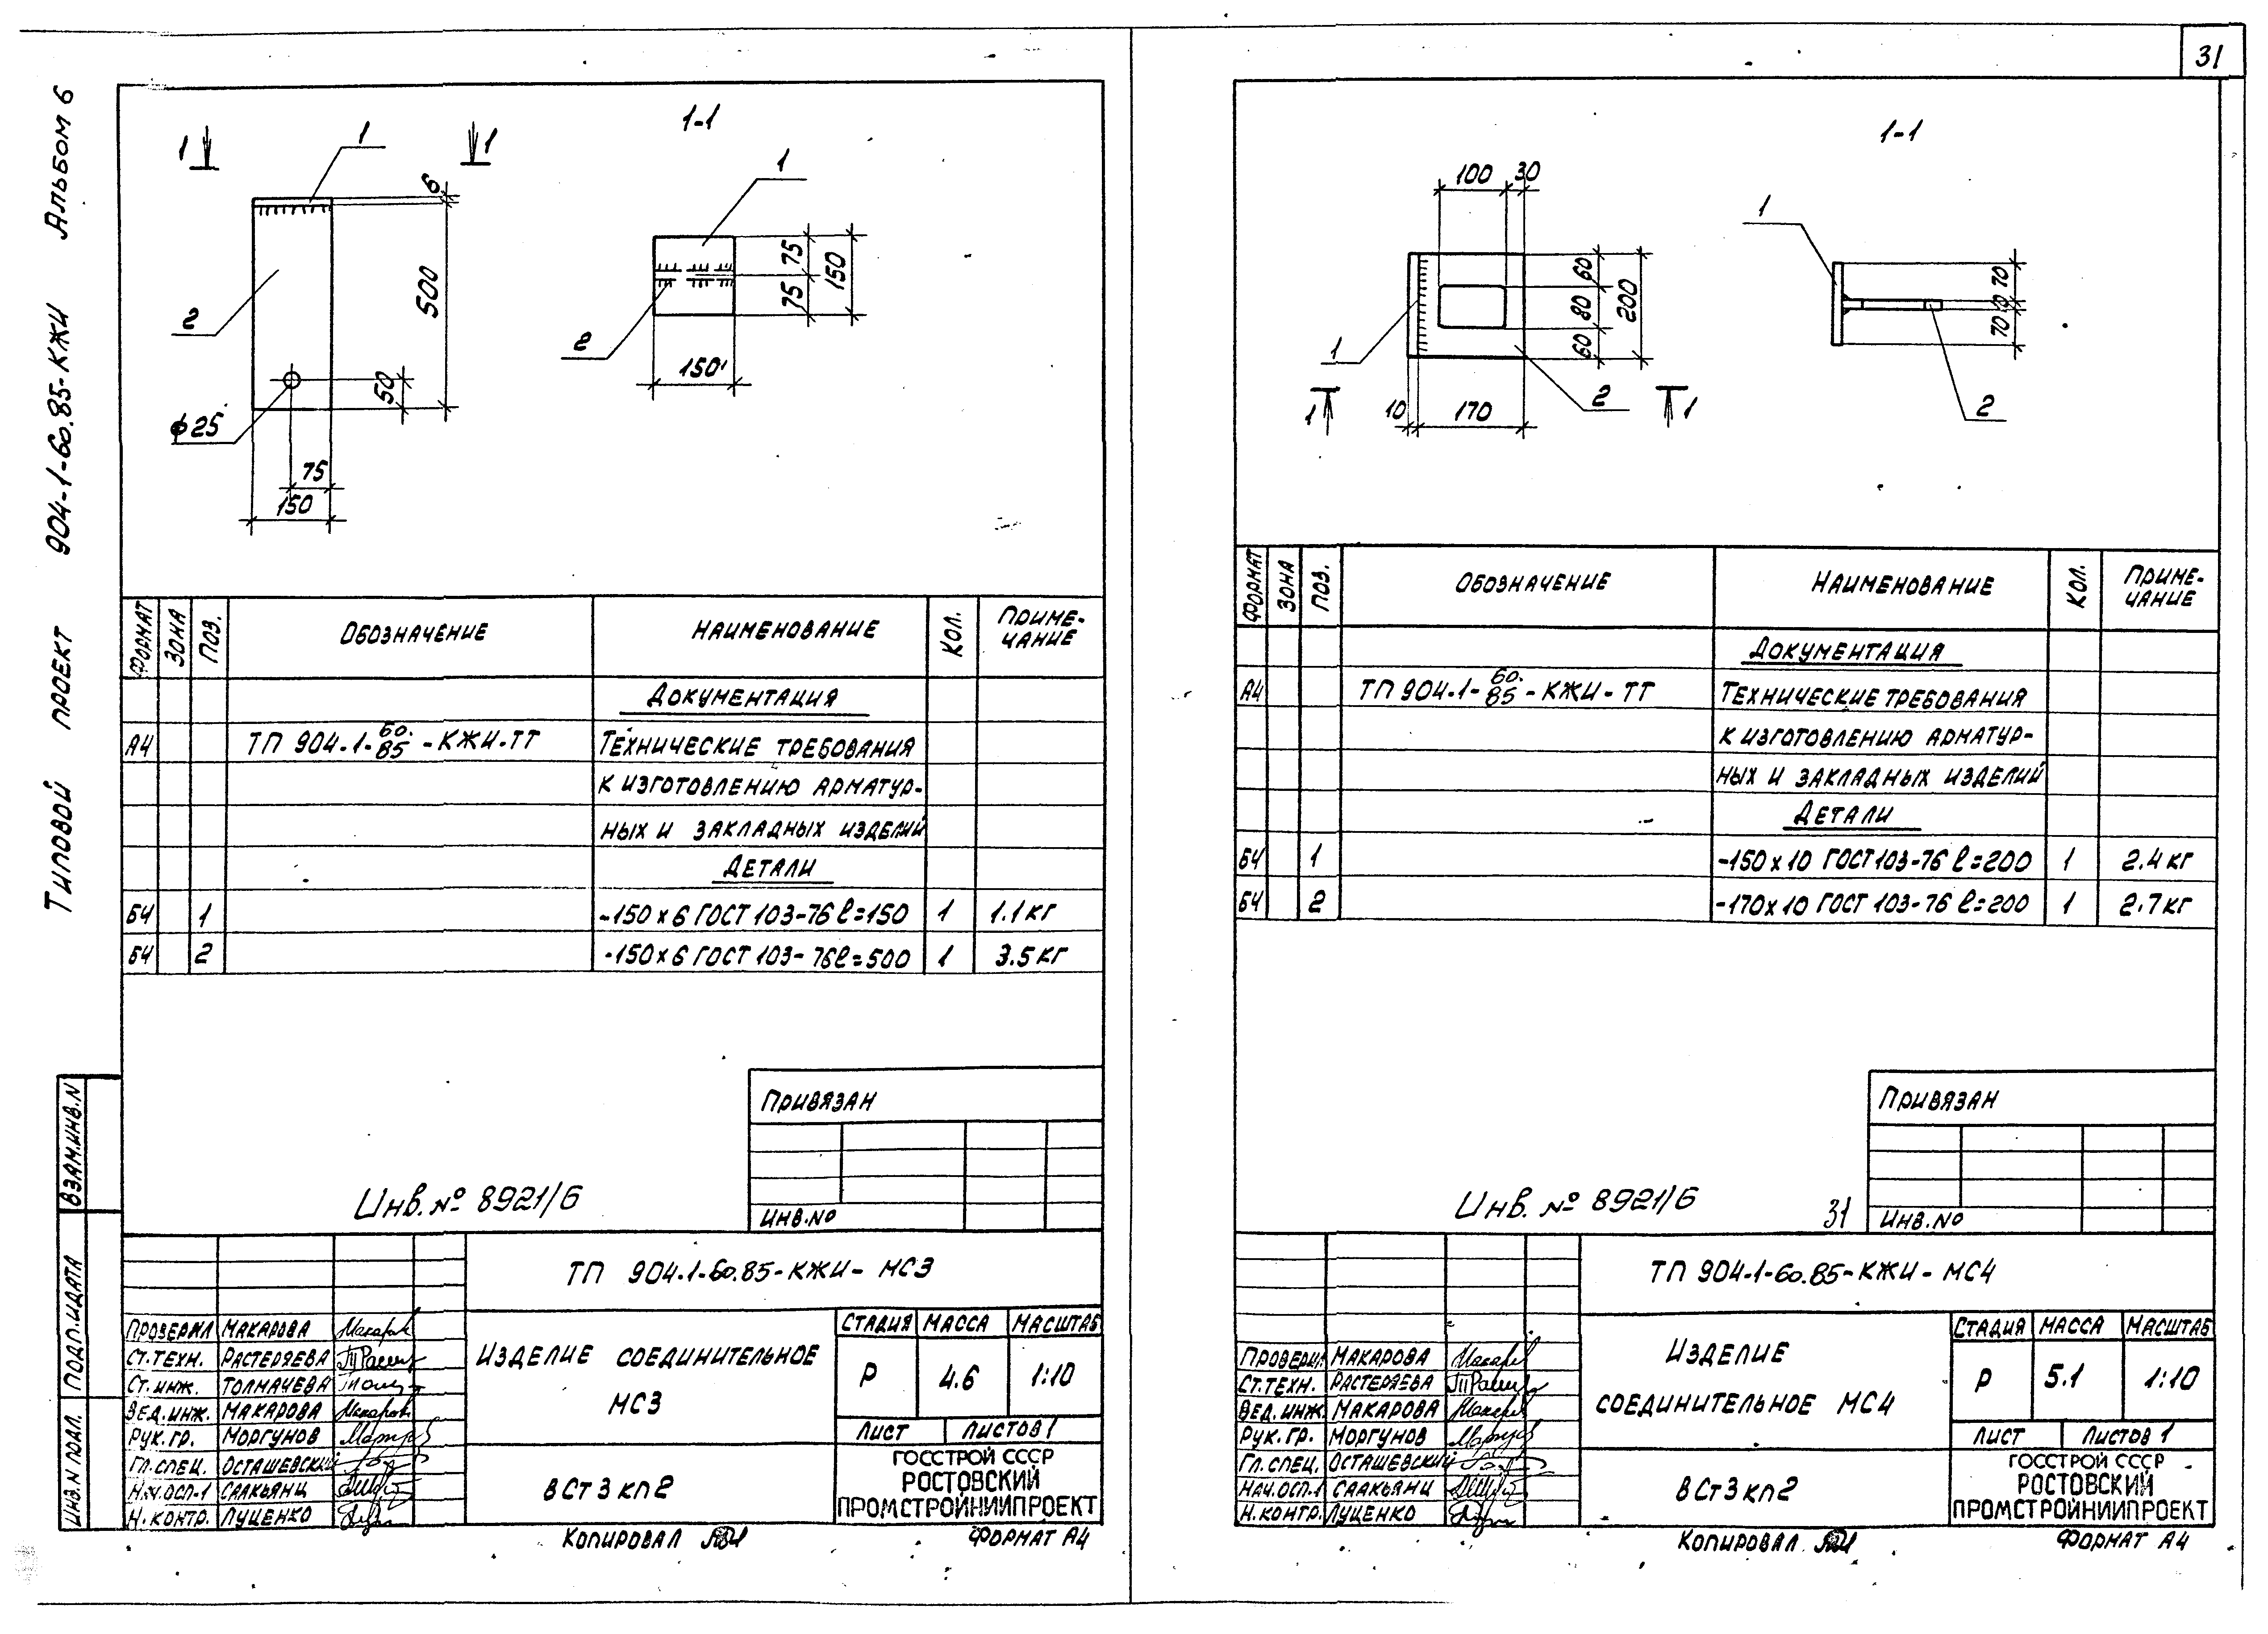 31
Типовой проект 904-1-60.85-КЖИ Альбом 6
1 1
1
6
500
2
50
ф25
75
150
1-1
1
75
75
150
2
150
ФОРМАТ ЗОНА ПОЗ. ОБОЗНАЧЕНИЕ НАИМЕНОВАНИЕ КОЛ. ПРИМЕ-
ЧАНИЕ
ДОКУМЕНТАЦИЯ
А4 ТП 904-1-60.85-КЖИ-ТТ ТЕХНИЧЕСКИЕ ТРЕБОВАНИЯ
К ИЗГОТОВЛЕНИЮ АРМАТУР-
НЫХ И ЗАКЛАДНЫХ ИЗДЕЛИЙ
ДЕТАЛИ
БЧ 1 -150х6 ГОСТ 103-76 ℓ=150 1 1.1 кг
БЧ 2 -150х6 ГОСТ 103-76 ℓ=500 1 3.5 кг
ПРИВЯЗАН
ИНВ.NО
Инв. № 8921/6
ВЗАМ.ИНВ.N
ПОДП.И ДАТА
ИНВ.N ПОДЛ.
ТП 904-1-60.85-КЖИ-МС3
ПРОВЕРИЛ МАКАРОВА
СТ.ТЕХН. РАСТЕРЯЕВА
СТ.ИНЖ. ТОЛМАЧЕВА
ВЕД.ИНЖ. МАКАРОВА
РУК.ГР. МОРГУНОВ
ГЛ.СПЕЦ. ОСТАШЕВСКИЙ
НАЧ.ОСП-1 СААКЬЯНЦ
Н.КОНТР. ЛУЦЕНКО
ИЗДЕЛИЕ СОЕДИНИТЕЛЬНОЕ
МС3
СТАДИЯ МАССА МАСШТАБ
Р 4.6 1:10
ЛИСТ ЛИСТОВ 1
ВСт3кп2
ГОССТРОЙ СССР
РОСТОВСКИЙ
ПРОМСТРОЙНИИПРОЕКТ
КОПИРОВАЛ ФОРМАТ А4
1-1
100 30
60
80
60
200
1
2
1 1
10 170
1
70
10
70
2
ФОРМАТ ЗОНА ПОЗ. ОБОЗНАЧЕНИЕ НАИМЕНОВАНИЕ КОЛ. ПРИМЕ-
ЧАНИЕ
ДОКУМЕНТАЦИЯ
А4 ТП 904-1-60.85-КЖИ-ТТ ТЕХНИЧЕСКИЕ ТРЕБОВАНИЯ
К ИЗГОТОВЛЕНИЮ АРМАТУР-
НЫХ И ЗАКЛАДНЫХ ИЗДЕЛИЙ
ДЕТАЛИ
БЧ 1 -150х10 ГОСТ 103-76 ℓ=200 1 2.4 кг
БЧ 2 -170х10 ГОСТ 103-76 ℓ=200 1 2.7 кг
ПРИВЯЗАН
ИНВ.NО
Инв. № 8921/6 31
ТП 904-1-60.85-КЖИ-МС4
ПРОВЕРИЛ МАКАРОВА
СТ.ТЕХН. РАСТЕРЯЕВА
ВЕД.ИНЖ. МАКАРОВА
РУК.ГР. МОРГУНОВ
ГЛ.СПЕЦ. ОСТАШЕВСКИЙ
НАЧ.ОСП-1 СААКЬЯНЦ
Н.КОНТР. ЛУЦЕНКО
ИЗДЕЛИЕ
СОЕДИНИТЕЛЬНОЕ МС4
СТАДИЯ МАССА МАСШТАБ
Р 5.1 1:10
ЛИСТ ЛИСТОВ 1
ВСт3кп2
ГОССТРОЙ СССР
РОСТОВСКИЙ
ПРОМСТРОЙНИИПРОЕКТ
КОПИРОВАЛ ФОРМАТ А4